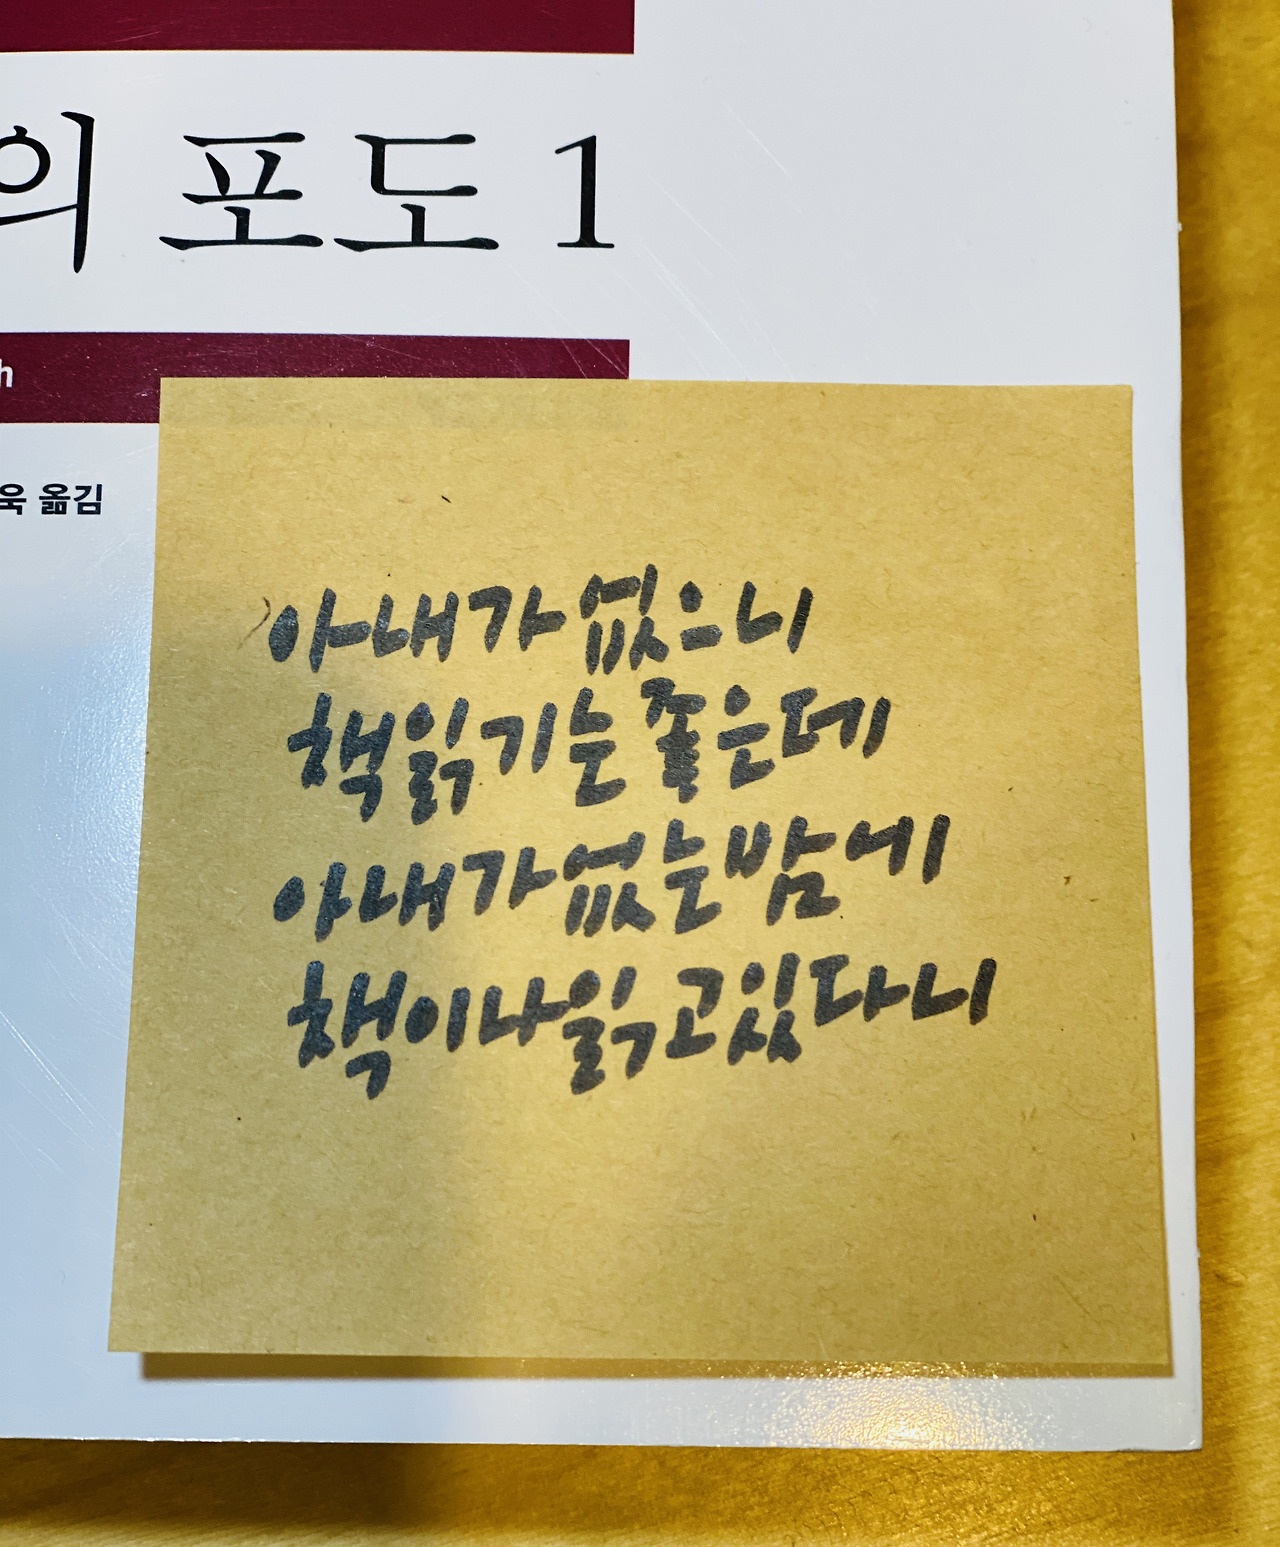 의 포도 1
h
욱 옮김
아내가 없으니
책 읽기는 좋은데
아내가 없는 밤에
책이나 읽고 있다니